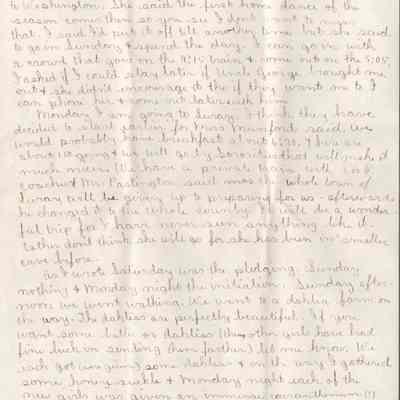 to Washington. She said the first home dance of the
season comes then so you see I don't want to miss
that. I said I'd put it off till another time but she said
to go in Sunday & spend the day. I can go in with
a crowd that goes on the 9:15 train & come out on the 5:05.
I asked if I could stay later if Uncle George brought me
out & she didn't encourage it tho if they want me to I
can phone her & come out later with him.
Monday I am going to Luray. I think they have
decided to start earlier for Miss Munford said we
would probably have breakfast about 6:30. & Sue are
about us going & we will go by Sororities that will make it
much nicer. We have a private train with
coaches & Mr. Castington said whole town of
Luray will be giving up to preparing for us - afterwards
he changed it to the whole county. It will be a wonder-
ful trip for I have never seen anything like it.
Esther don't think she will go for she has been in smaller
cave before.
As I wrote Saturday was the pledging, Sunday
nothing & Monday night the initiation. Sunday after-
noon we went walking. We went to a dahlia farm on
the way. The dahlias are perfectly beautiful. If you
want some bulbs or dahlias (the other girls have had
fine luck in sending them farther) let me know. We
each got (was given) some dahlias & on the way I gathered
some honey suckle & Monday night each of the
new girls was given an immense